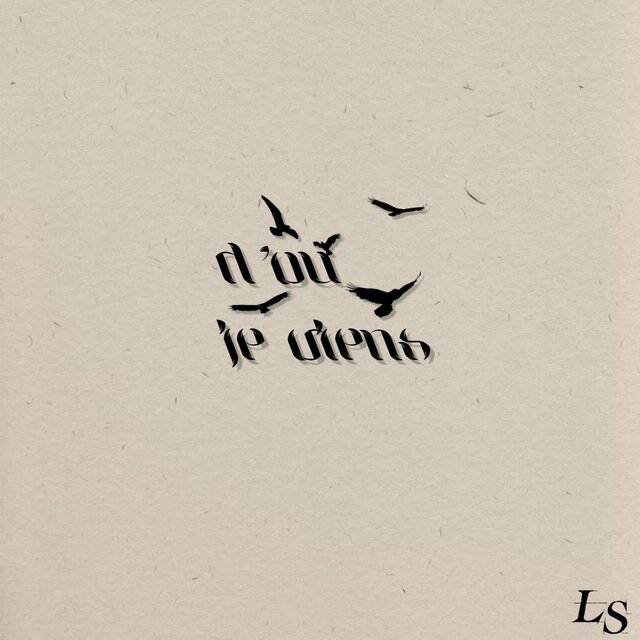 d'où
je viens
LS